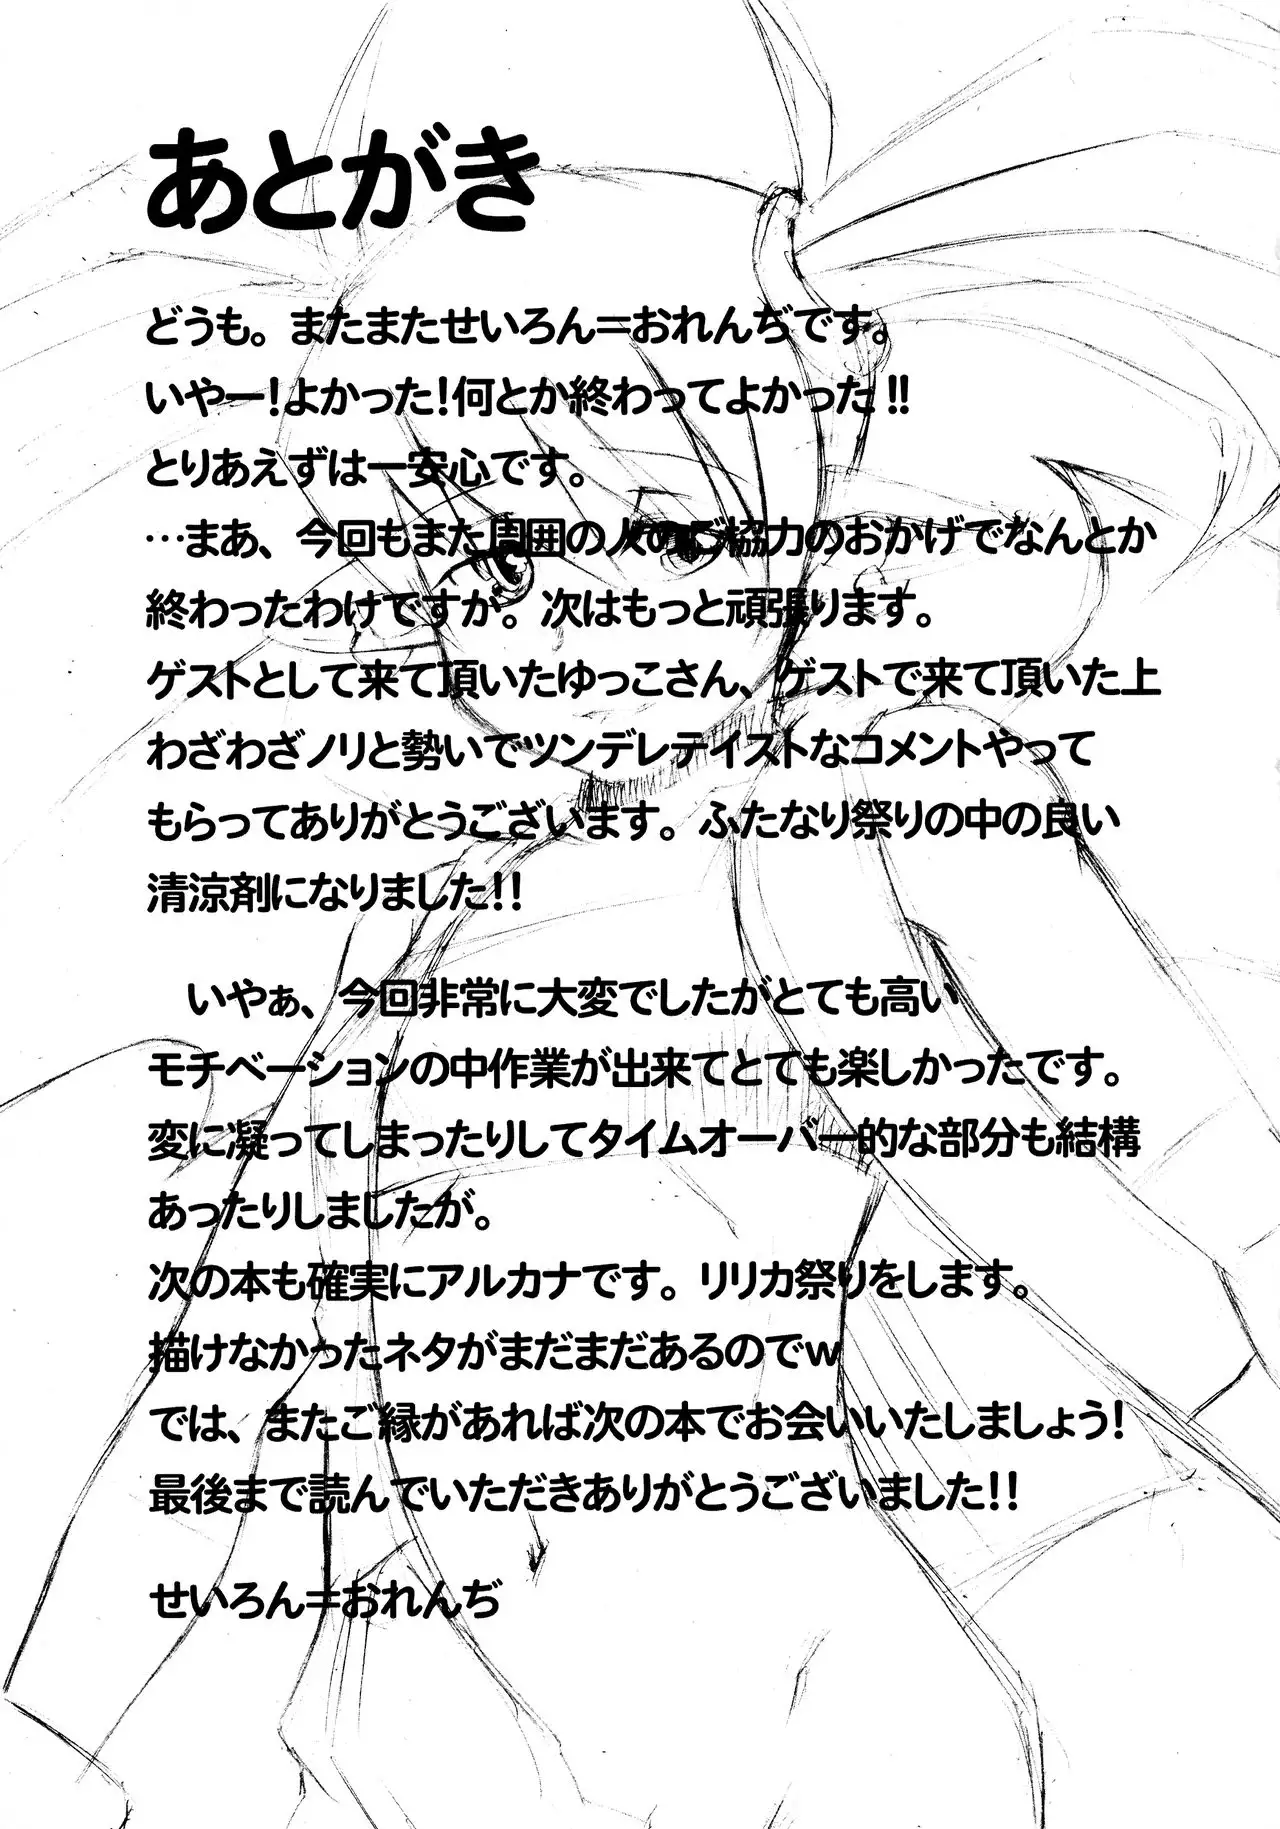 あとがき
どうも。またまたせいろん＝おれんぢです。
いやー！よかった！何とか終わってよかった!!
とりあえずは一安心です。
…まあ、今回もまた周囲の人のご協力のおかげでなんとか
終わったわけですが。次はもっと頑張ります。
ゲストとして来て頂いたゆっこさん、ゲストで来て頂いた上
わざわざノリと勢いでツンデレテイストなコメントやって
もらってありがとうございます。ふたなり祭りの中の良い
清涼剤になりました!!
いやぁ、今回非常に大変でしたがとても高い
モチベーションの中作業が出来てとても楽しかったです。
変に凝ってしまったりしてタイムオーバー的な部分も結構
あったりしましたが。
次の本も確実にアルカナです。リリカ祭りをします。
描けなかったネタがまだまだあるのでw
では、またご縁があれば次の本でお会いいたしましょう！
最後まで読んでいただきありがとうございました!!
せいろん＝おれんぢ